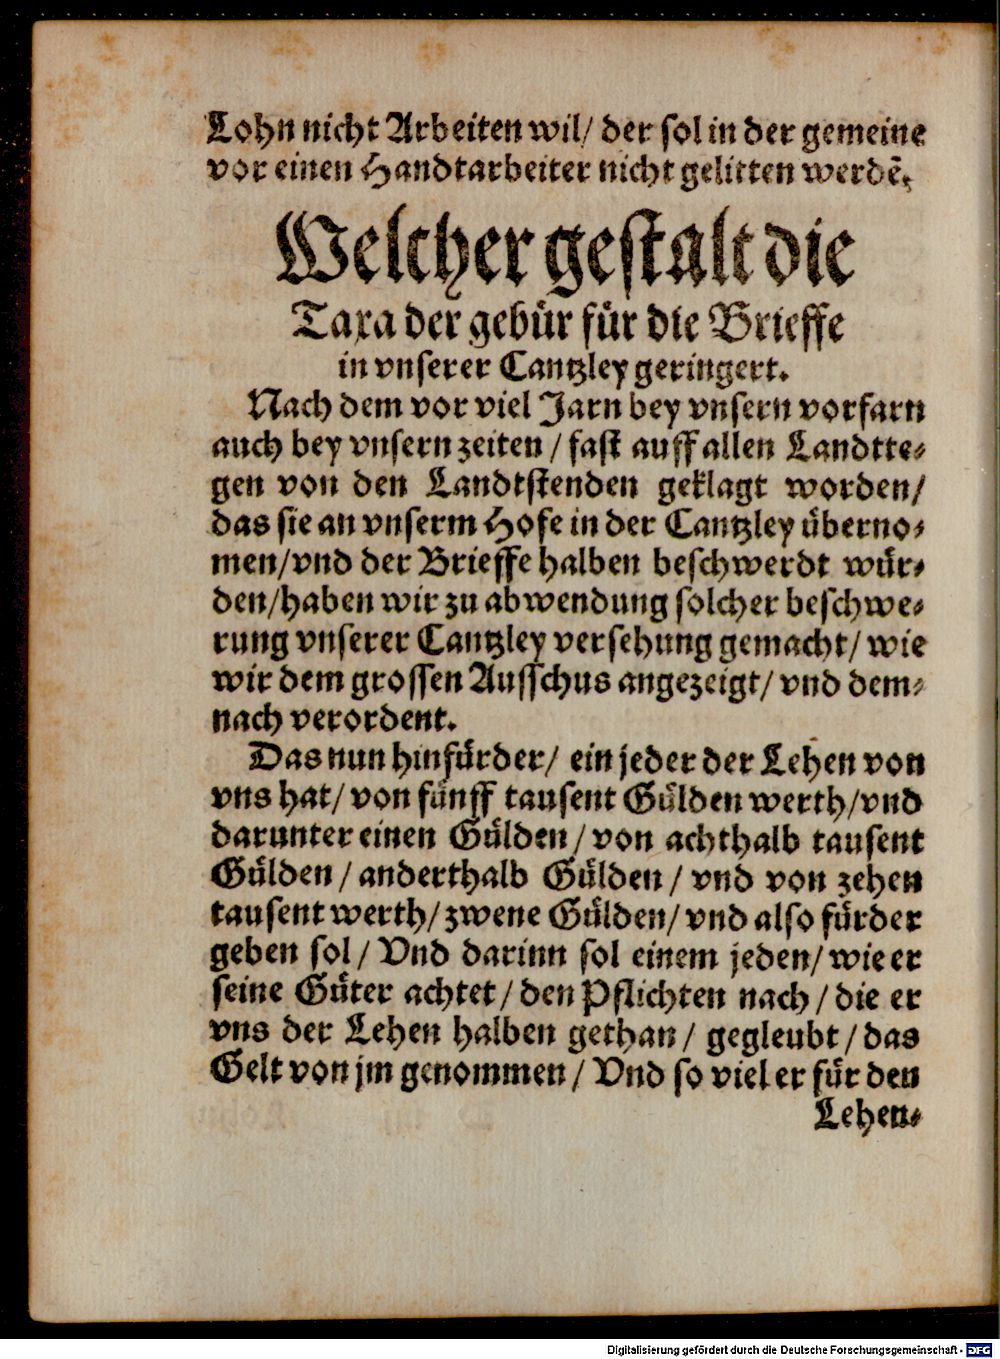 Lohn nicht Arbeiten wil/ der sol in der gemeine
vor einen Handtarbeiter nicht gelitten werdē.
Welcher gestalt die
Taxa der gebür für die Brieffe
in vnserer Cantzley geringert.
Nach dem vor viel Jarn bey vnsern vorfarn
auch bey vnsern zeiten / fast auff allen Landtte-
gen von den Landtstenden geklagt worden/
das sie an vnserm Hofe in der Cantzley überno-
men/vnd der Brieffe halben beschwerdt wür-
den/haben wir zu abwendung solcher beschwe-
rung vnserer Cantzley versehung gemacht/ wie
wir dem grossen Ausschus angezeigt/ vnd dem-
nach verordent.
Das nun hinfürder/ ein jeder der Lehen von
vns hat/ von fünff tausent Gülden werth/vnd
darunter einen Gülden / von achthalb tausent
Gülden / anderthalb Gülden / vnd von zehen
tausent werth/ zwene Gülden/ vnd also fürder
geben sol / Vnd darinn sol einem jeden/ wie er
seine Güter achtet / den Pflichten nach / die er
vns der Lehen halben gethan / gegleubt / das
Gelt von jm genommen / Vnd so viel er für den
Lehen-
Digitalisierung gefördert durch die Deutsche Forschungsgemeinschaft - DFG